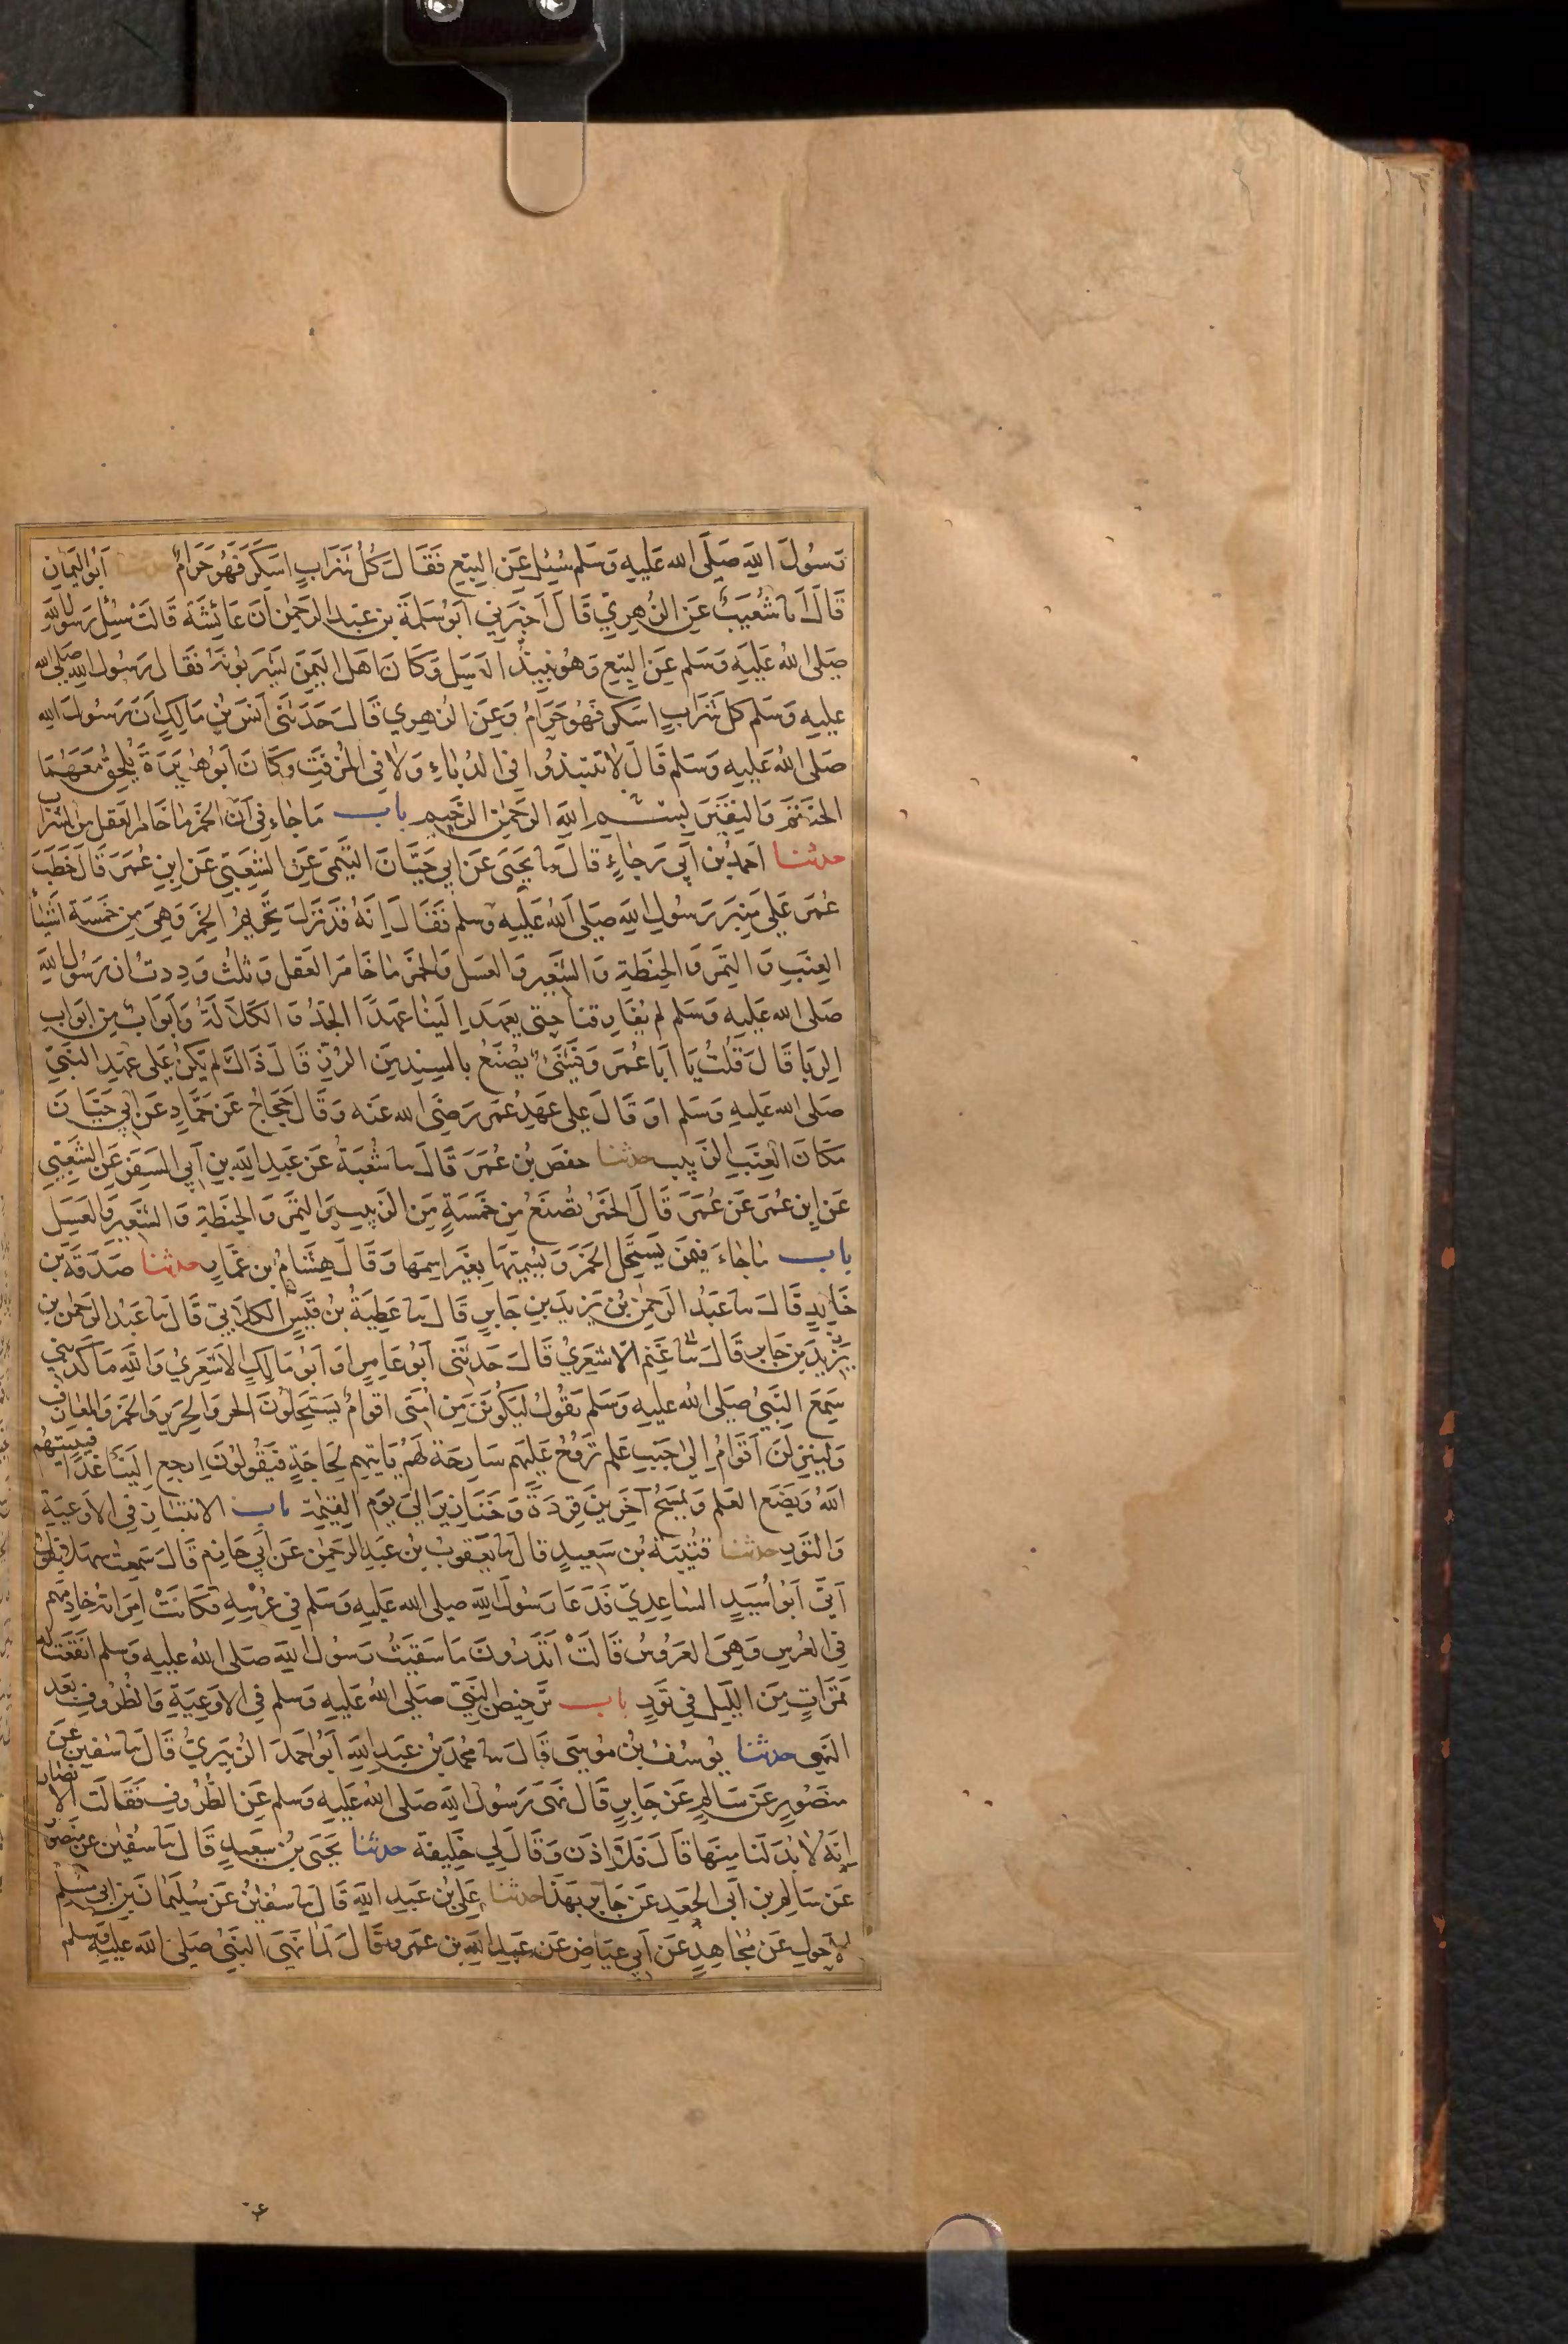 رَسُولَ اللهِ صَلَّى الله عَلَيهِ وَسَلم سُئِل عَن البِتع فَقَالَ كُل شَرَابٍ اسكَرَ فَهُوَ حَرَامٌ حدثنا اَبُو اليَمان
قَالَ انا شُعَيبٌ عَن الزهرِيِّ قَالَ اَخبَرَنِي اَبوُ سَلمَةَ بن عَبدِ الرَحمٰن اَنَ عَائِشَةَ قَالَت سُئِل رَسُولُ اللهِ
صَلى اللهُ عَليَهِ وَسَلم عَن البِتع وَهُوَ نَبِيذُ العَسَل وَكَانَ اهَل اليَمنَ يَشرَبوُنَهُ فَقَال رَسُول اللهِ صَلى الله
عليهِ وَسَلم كل شَرَابٍ اسكر فَهُو حَرَامٌ وَعَن الزهري قَالَ حَدَثنَى اَنَس بُن مَالِكٍ اَن رَسُولَ الله
صَلى اللهُ عَليهِ وَسَلم قَالَ لاَ تَنتبذُوا فى الدُباءِ وَلا فِى المزفتِ وكَانَ اَبوُ هُرَيَرةَ يُلحِقُ مَعَهُمَا
الحَنتَمَ وَالنِقيَرَ بسم اللهِ الرحمٰن الرَحيم باب مَا جَاءَ فِى اَنَّ الخَمرَ مَا خَامَرَ العَقل مِن الشرَاب
حدثنا احمَدُ بن اَبى رَجاءٍ قالَ نا يَحيَى عَن ابى حَيَّانَ التيمى عَن الشعَبى عَن اِبنِ عُمَرَ قَالَ خَطَبَ
عُمَر عَلى مِنبَر رَسُول اللهِ صَلى اللهُ عَلَيهِ وَسلم فَقَالَ اِنَهُ قَد نَزَلَ تحَريمُ الخمَر وَهِىَ مِن خَمسَةِ اشَيَاَ
العِنَب وَالتَمر وَالحِنطَةِ وَالشَعِير وَالعسَل وَالخمر مَا خَامَر العَقل وَثلث وَدِدتُ ان رَسُول اللهِ
صَلى الله عَلَيهِ وَسَلم لم يُفارِقنَا حَتى يعهَد اِلَينَا عَهدًا الجدُ وَالكَلاَلَةُ وَاَبَوَابٌ مِن ابوَاب
الِربَا قَالَ قلُتُ يَا اَبَا عُمَر وَفشَىءٌ يصُنَعُ بالسِندِ مِن الرُز قَالَ ذَاكَ لم يَكُن عَلى عَهدِ النَبِيّ
صَلى الله عَليهِ وَسَلم اوَ قَالَ علَى عَهدِ عُمَر رَضِىَ الله عَنه وَقَالَ حَجَاجٌ عَن حَمَّادٍ عَن ابِي حَيَّانَ
مَكَانَ العِنَب الزَبِيب حدثنا حفصُ بن عُمَرَ قَالَ نا شُعبَةُ عَن عَبدِ اللهِ بنِ اَبي السَفَرِ عَن الشَعبِي
عَن اِبن عُمَر عَن عُمَرَ قَالَ الخمَرُ تُصنَعُ مِن خَمسَةٍ مِنَ الزبِيب وَالتمَر وَالحِنطَةِ وَالشعِيرِ وَالعَسَل
باب مَا جَاءَ فيمَن يَستَحِل الخَمرَ وَيُسَمِيهَا بِغَير اسِمهَا وَقَالَ هِشَامُ بن عَمَّارٍ حدثنا صَدَقَة بن
خَالِدٍ قَالَ نا عَبدُ الرَحمٰن بُن يَزيدَ بن جَابِرٍ قَالَ نا عَطِيَةُ بنُ قَيسٍ الكلاَبِيّ قَالَ نا عَبدُ الرَحمٰن بن
يَزِيدَ بن جَابر قَالَ نا غَنم الاَشعَرِيُ قَالَ حَدثَنَى اَبوُ عَامِرٍ اَو اَبوُ مَالِكٍ الاَشعَرِيُ وَاللهِ مَا كَذَبَني
سَمِعَ النَبيَّ صَلى اللهُ عَليهِ وَسَلم يَقوُلُ لَيَكُونَنَ مِن اُمَتى اقوامٌ يَستَحِلوُنَ الحرَ وَالحرير وَالخمرَ وَالمعازف
وَلَينزلَنَ اَقوَامٌ اِلىٰ جَنبِ عَلمٍ تَرُوحُ عَليهم سَارِحَة لَهُم يَاتيهِم لِحَاجَةٍ فَيَقُولُونَ اِرجِع اِلَينَا غَدًا فَيُبَيِتُهُم
اللهُ وَيَضَع العَلم وَيمسَخُ آخَرِينَ قِرَدَةً وَخَنَازِيرَ اِلَى يَوم القِيٰمَةِ باب الانتبَاذِ فِى الاَوعِيَةِ
وَالتَورِ حدثنا قتُيَبَة بُن سَعِيدٍ قال نا يعَقوبُ بن عَبدِ الرَحمٰن عَن اَبي حَازِم قَالَ سَمِعتُ سهَلاً يقُولُ
اَتَى اَبوُ اُسَيدٍ السَاعِدِيّ فَدَعَا رَسُولَ اللهِ صَلى الله عَليهِ وَسَلم فى عُرسِهِ فَكَانَتْ امِرَاتهُ خَادِمَهم
فى العُرسِ وَهِىَ العَرُوسُ قَالَتْ اَتَدرُونَ مَا سَقَيتُ رَسُولَ اللهِ صَلى اللهُ عَليهِ وَسلم اَنقَعتُ لَه
تمَرَاتٍ مِنَ اللَّيل فِى تَورٍ باب تَرخِيص النَبِيّ صَلى اللهُ عَليهِ وَسلم فِى الاوَعِيَةِ وَالظُرُوف بَعد
النَهى حدثنا يوُسُفُ بنُ مُوسَى قَالَ نا مُحمَدُ بن عَبدِ اللهِ اَبوُ احَمدَ الزُبَيريُّ قَالَ نا سُفين عَن
مَنصُورٍ عَن سَالمٍ عَن جَابِرٍ قَال نَهَى رَسُول اللهِ صَلى اللهُ عَليهِ وَسلم عَن الظُرُوف فَقَالَت الاَنصَار
اِنَهُ لاَ بُدَ لَنَا مِنهَا قَالَ فَلاَ اِذَن وَقَالَ لي خَلِيفَة حدثنا يَحيَى بُن سَعِيدٍ قَالَ نا سُفيٰن عَن مَنصُور
عَن سَالِم بنِ اَبي الجعَدِ عَن جَابِر بهَذَا حدثنا عَلِيُ بن عَبدِ اللهِ قَالَ نا سفيٰنُ عَن سُلَيمَانَ بن ابى مُسلم
الاَحولِ عَن مُجاهِدٍ عَن اَبي عيَاضٍ عَن عَبدِ اللهِ بن عمَرو قَالَ لَمَا نَهَى النَبيُ صَلى الله عَليهِ وَسلم